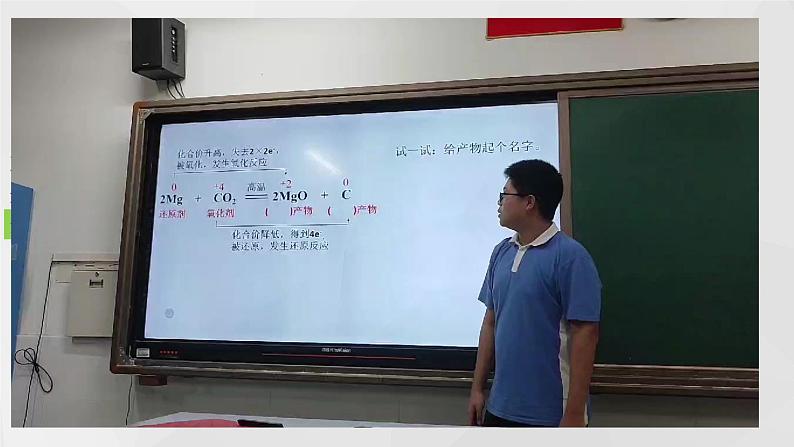 化合价升高，失去2×2e-，
被氧化，发生氧化反应
试一试：给产物起个名字。
0 +4 高温 +2 0
2Mg + CO₂ = 2MgO + C
还原剂 氧化剂 ( )产物 ( )产物
化合价降低，得到4e-
被还原，发生还原反应